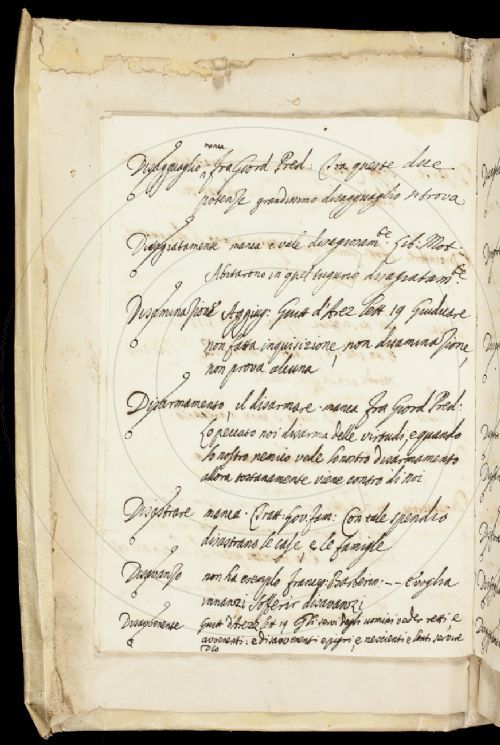 Disagguaglio manca fra Giord Pred: Tra queste due
potenze grandissimo disagguaglio si trova
Disagiatamente manca e vale disagiosam.te Lib: Mot.
Abitarono in quel tugurio disagiatam.te
Disaminazione Aggiug: Guitt d'Arez lett 19 Giudicare
non fatta inquisizione, non disaminazione,
non prova alcuna
Disarmamento, il disarmare. manca fra Giord Pred:
Lo peccato noi disarma delle virtudi, e quando
lo nostro nemico vede lo nostro disarmamento
allora tostanamente viene contro di noi
Disastrare manca. Tratt. Gov. fam: Con tale spendio
disastrano le case, e le famigle
Disavanzo non ha esemplo franc. Barberin: -- E voglia
innanzi sofferir disavanzi
Guitt d'Arezz lett 19 Gli servi degli uomini veder retti, e
avvenenti. e disavvenenti e pigri, e nescienti e lenti servire
Dio